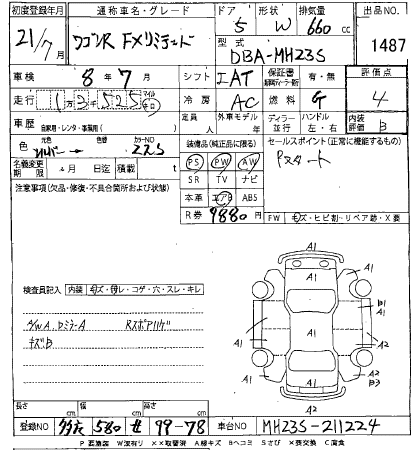 初度登録年月 通称車名・グレード ドア 形状 排気量 出品NO.
21/7月 ワゴンR FXリミテッド 5 W 660cc 1487
型式 DBA-MH23S
車検 8年7月 シフト IAT 保証書 有・無 評価点
走行 1万3525 マイル キロ 冷房 AC 燃料 G 4
車歴 自家用・レンタ・事業用 定員 人 外車モデル ディーラー 並行 ハンドル 左・右 内装評価 B
色 元色 シルバー→ 色替 カラーNO Z2S 装備品(純正品に限る) セールスポイント(正常に機能するもの)
PS PW AW Pスタート
名義変更期限 月 日迄 積載 t SR TV ナビ
注意事項(欠品・修復・不具合箇所および状態) 本革 エアB ABS
R券 9880円 FW キズ・ヒビ割・リペア跡・X要
A1
A1 A1
検査員記入 内装 キズ・汚レ・コゲ・穴・スレ・キレ
A1 B1 A1
F/WA、ロミラーA Rスポアリハゲ
キズB A2
A2 B3
A1
長さ cm 幅 cm 高さ cm
登録NO 580 せ 99-78 車台NO MH23S-211224
P要塗装 W波有リ XX取替済 A線キズ Bヘコミ Sさび X要交換 C腐食